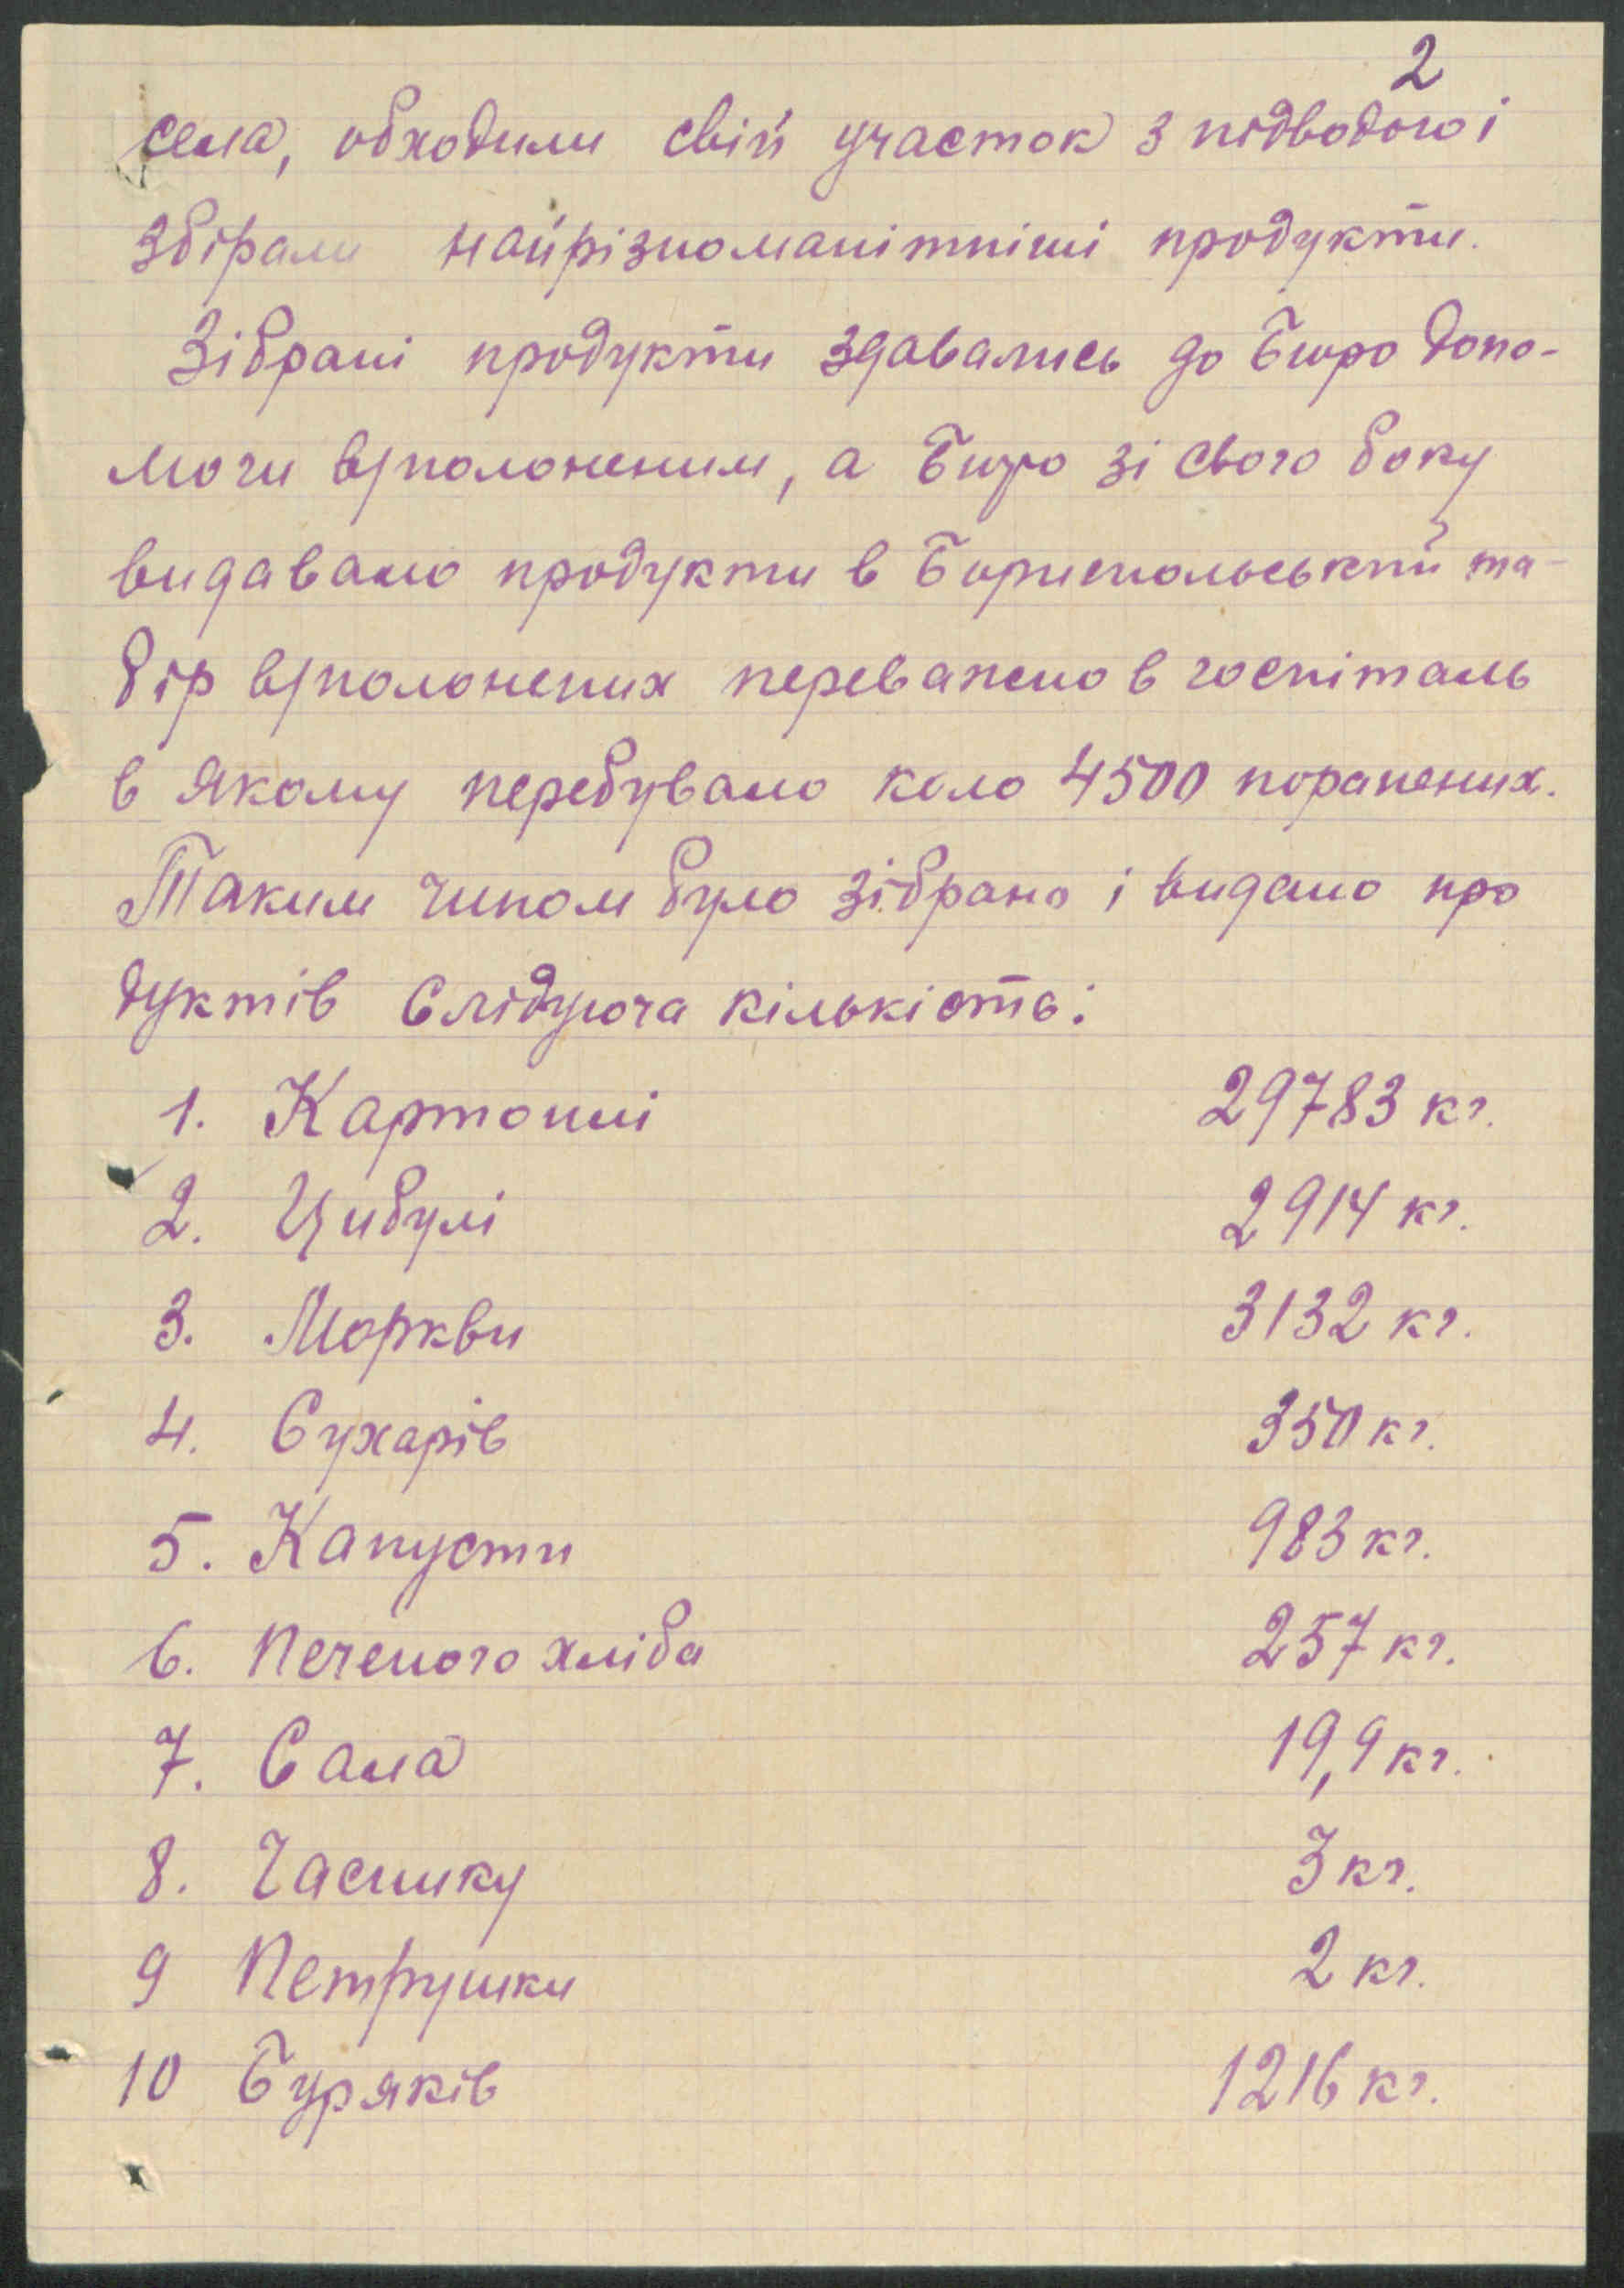 2
села, обходили свій участок з підводою і
збірали найрізноманітніші продукти.
Зібрані продукти здавались до Бюро допо-
моги в/полоненим, а Бюро зі свого боку
видавало продукти в Бориспольський та-
бір в/полонених переважно в госпіталь
в якому перебувало коло 4500 поранених.
Таким чином було зібрано і видано про
дуктів слідуюча кількість:
1. Картоплі 29783 кг.
2. Цибулі 2914 кг.
3. Моркви 3132 кг.
4. Сухарів 350 кг.
5. Капусти 983 кг.
6. Печеного хліба 257 кг.
7. Сала 19,9 кг.
8. Часнику 3 кг.
9 Петрушки 2 кг.
10 Буряків 1216 кг.